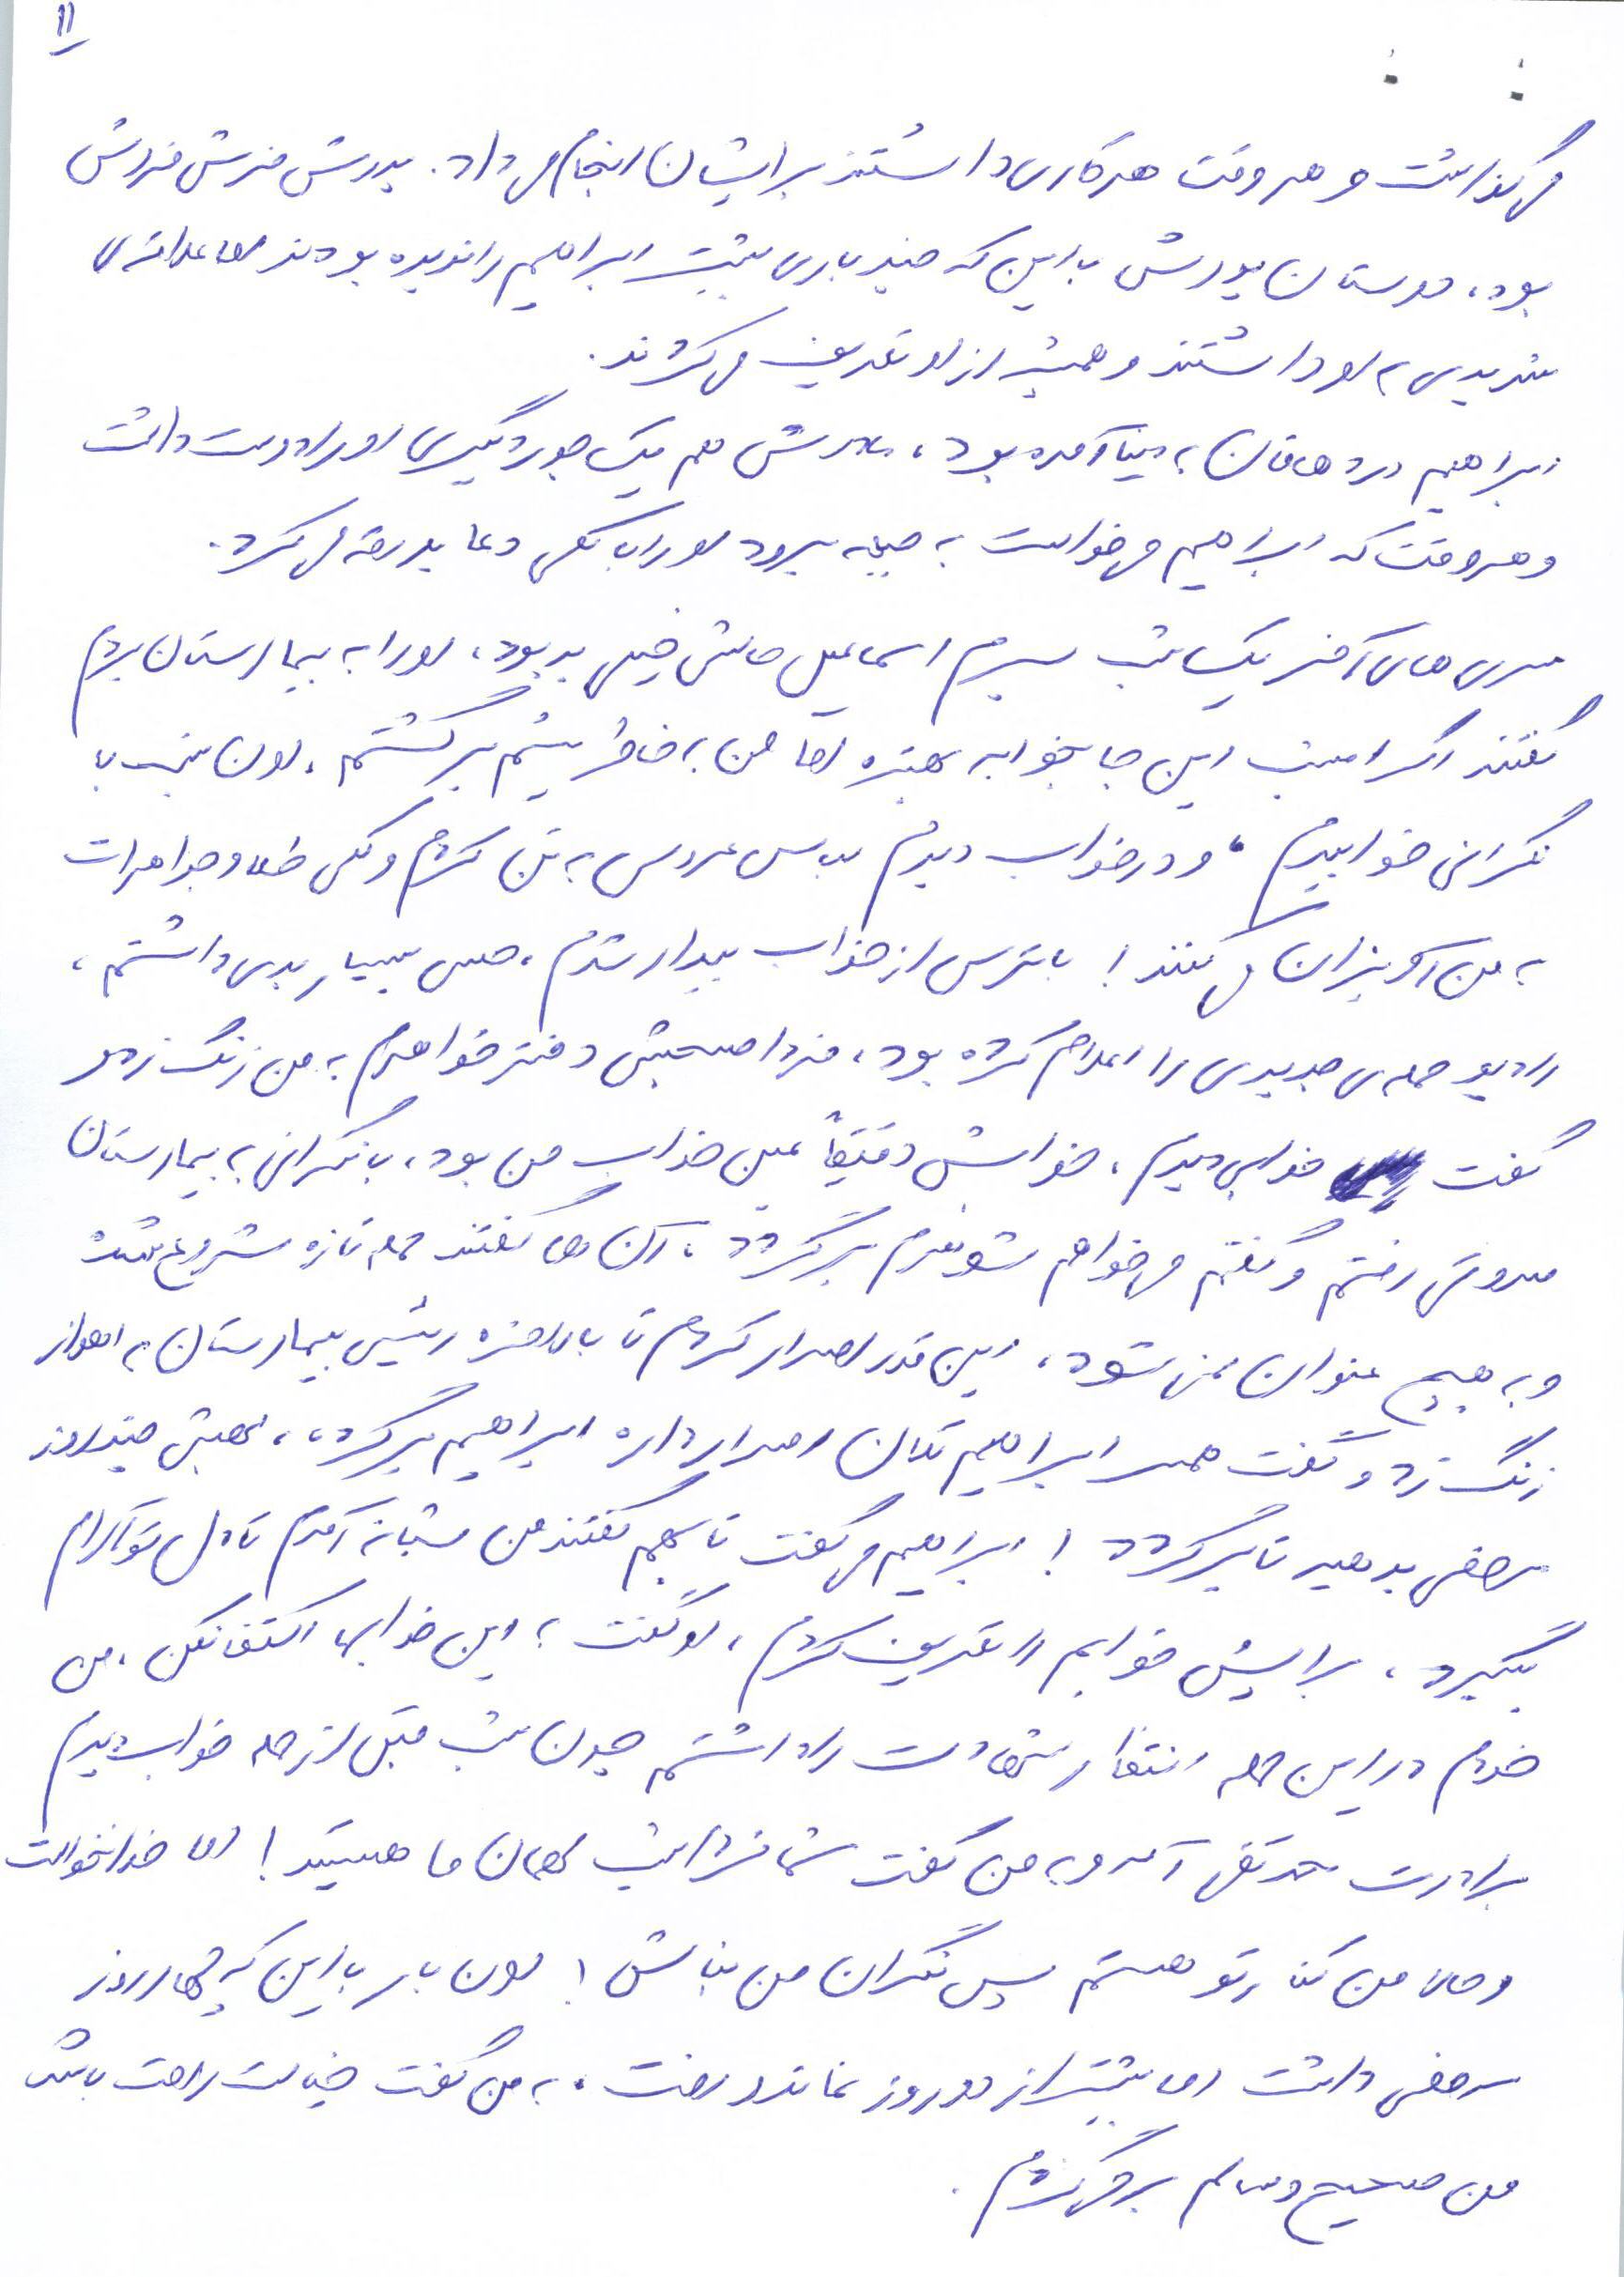 ۱۱
می‌گذاشت و هر وقت هر کاری داشتند برایشان انجام می‌داد. پدرش فرش فروش
بود، دوستان پدرش با این که چند باری بیشتر ابراهیم را ندیده بودند اما علاقه‌ی
شدیدی به او داشتند و همیشه از او تعریف می‌کردند.
ابراهیم در دهاقان به دنیا آمده بود، مادرش هم یک جور دیگری او را دوست داشت
و هر وقت که ابراهیم می‌خواست به جبهه برود او را با کلی دعا بدرقه می‌کرد.
سری های آخر یک شب پسرم اسماعیل حالش خیلی بد بود، او را به بیمارستان بردم
گفتند اگر امشب این جا بخوابه بهتره اما من به خاطر میثم برگشتم، اون شب با
نگرانی خوابیدم، و در خواب دیدم لباس عروس به تن کردم و کلی طلا و جواهرات
به من آویزان می‌کنند! با ترس از خواب بیدار شدم، حس بسیار بدی داشتم،
رادیو حمله‌ی جدیدی را اعلام کرده بود، فردا صبحش دختر خواهرم به من زنگ زد و
گفت خوابی دیدم، خوابش دقیقاً عین خواب من بود، با نگرانی به بیمارستان
سروش رفتم و گفتم می‌خواهم شوهرم برگردد، آن ها گفتند حمله تازه شروع شده
و به هیچ عنوان نمی‌شود، این قدر اصرار کردم تا بالاخره رئیس بیمارستان به اهواز
زنگ زد و گفت همسر ابراهیم تکلان اصرار داره ابراهیم برگرده، بهش چند روز
مرخصی بدهید تا برگردد! ابراهیم می‌گفت تا بهم گفتند من شبانه آمدم تا دل تو آرام
بگیرد، برایش خوابم را تعریف کردم، او گفت به این خوابها اکتفا نکن، من
خودم در این حمله انتظار شهادت را داشتم چون شب قبل از حمله خواب دیدم
برادرت محمدتقی آمد و به من گفت شما فردا شب مهمان ما هستید! اما خدا نخواست
و حالا من کنار تو هستم پس نگران من نباش! اون بار با این که چهار روز
مرخصی داشت اما بیشتر از دو روز نماند و رفت، به من گفت خیالت راحت باشه
من صحیح و سالم برمی‌گردم.